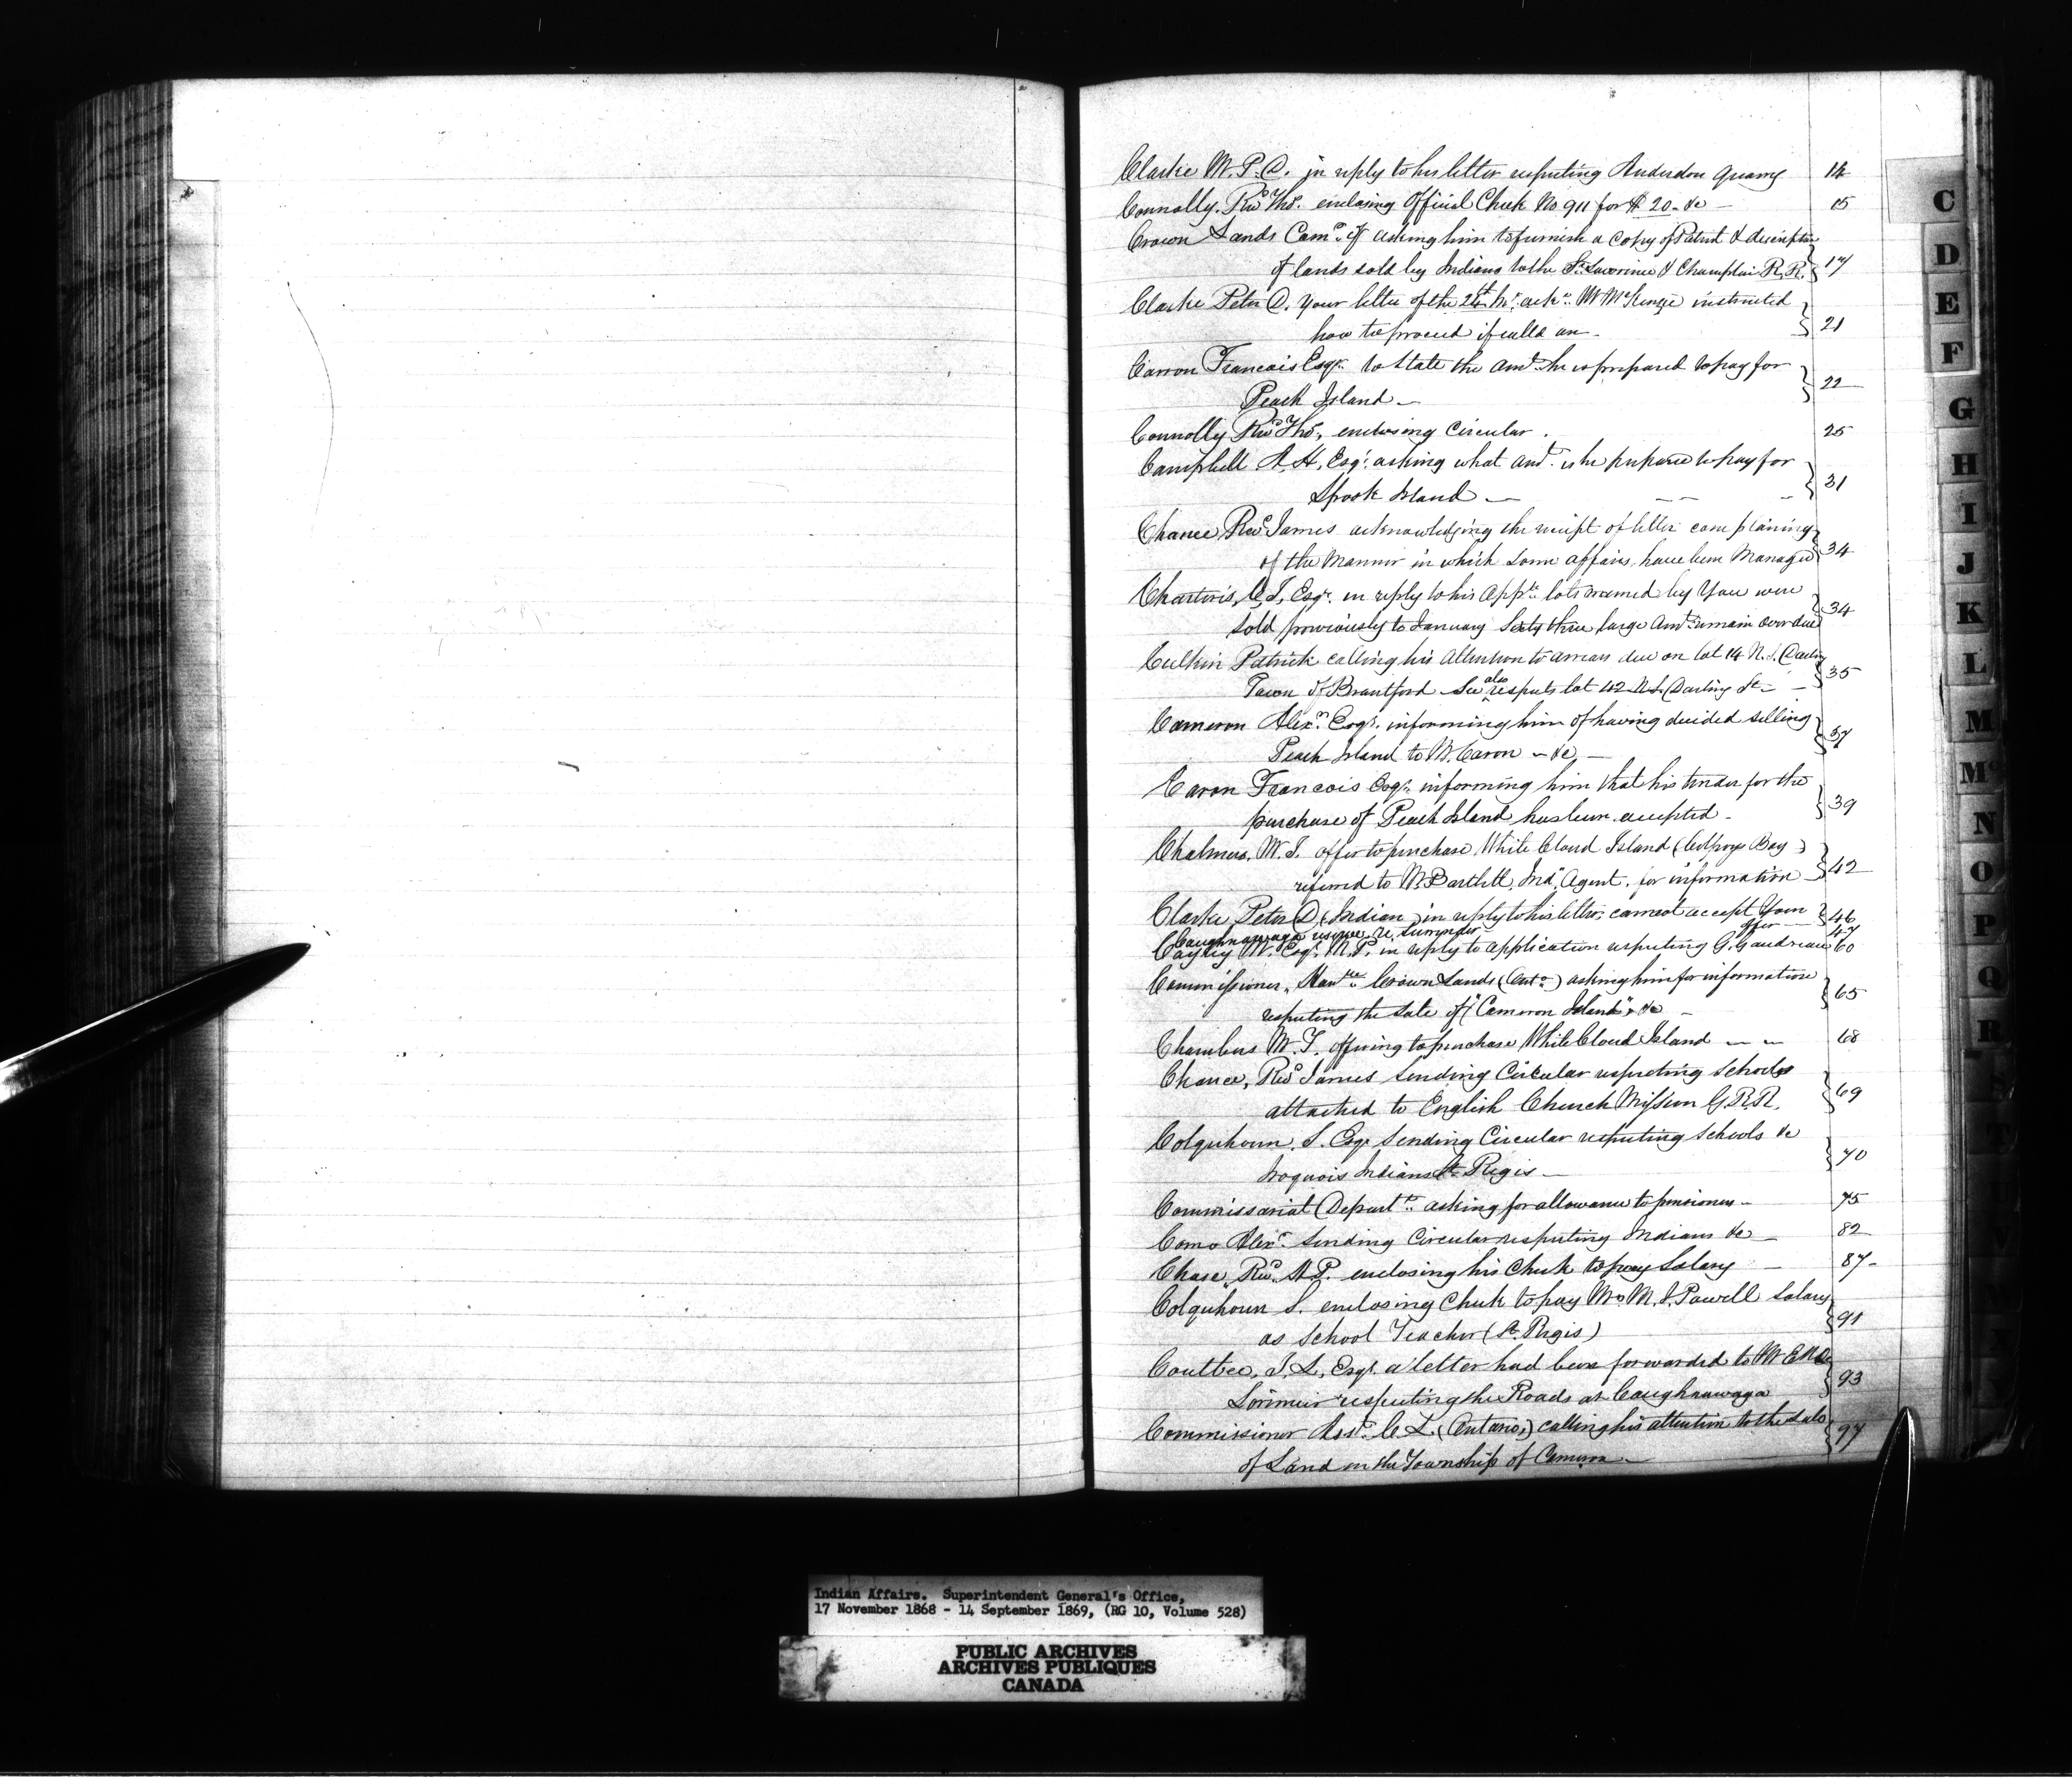 Clarke M. P. D. in reply to his letter respecting Anderdon Quarry 14
Connolly. Revd Thos. enclosing Official Check No 911 for $ 20 - &c - 15
Crown Lands Comr. of asking him to furnish a Copy of Patent & description
of lands sold by Indians to the St. Lawrence & Champlain R. R. 17
Clarke Peter D. Your letter of the 24th ackd. Mr McKenzie instructed
how to proceed if calld on - 21
Carron Francois Esqr. to State the Amt. he is prepared to pay for
Peach Island - 22
Connolly Revd Thos, enclosing Circular. 25
Campbell A. H, Esqr. asking what amt. is he prepared to pay for
Spook Island - 31
Chance, Revd James acknowledging the receipt of letter complaining
of the Manner in which some affairs have been Managed 34
Charteris, C. J, Esqr. in reply to his Appn. lots named by You were
sold previously to January Sixty three large Amts. remain over due 34
Culkin Patrick calling his Attention to arrears due on lot 14 N. S. Darling
Town of Brantford - See also respects lot 42 N. S. Darling St - 35
Cameron Alexr. Esqr. informing him of having decided selling
Peach Island to Mr. Caron - &c - 37
Caron Francois Esqr. informing him that his tender for the
purchase of Peach Island has been accepted - 39
Chalmers, W. J. offer to purchase White Cloud Island (Colpoys Bay)
referred to Mr Bartlett, Ind. Agent. for information 42
Clarke Peter D (Indian) in reply to his letter, cannot accept Your offer 46
Caughnawaga reserve re. Surrender 47
Cayley M. Esqr. M. P. in reply to application respecting G. Gaudreau 60
Commissioner, Crown Lands (Onto.) asking him for information
respecting the sale of "Cameron Island" &c - 65
Chambers W. T. offering to purchase White Cloud Island - - 68
Chance, Revd James sending Circular respecting Schools
attached to English Church Mission G. R. R. 69
Colquhoun, S. Esqr sending Circular respecting Schools &c
Iroquois Indians St. Regis - 70
Commissariat Departt. asking for allowance to pensioners - 75
Como Alexr. sending Circular respecting Indians &c - 82
Chase, Revd. H P. enclosing his Check to pay Salary - 87-
Colquhoun S. enclosing Check to pay Mrs M. J. Powell Salary
as School Teacher (St. Regis) 91
Couttee, J. L, Esqr. a letter had been forwarded to Mr E. N. De
Lorimier respecting the Roads at Caughnawaga 93
Commissioner Asst. C. L. (Ontario,) calling his attention to the Sale
of Land in the Township of Cameron - 97
C
D
E
F
G
H
I
J
K
L
M
Mc
N
O
P
Q
R
Indian Affairs. Superintendent General's Office,
17 November 1868 - 14 September 1869, (RG 10, Volume 528)
PUBLIC ARCHIVES
ARCHIVES PUBLIQUES
CANADA